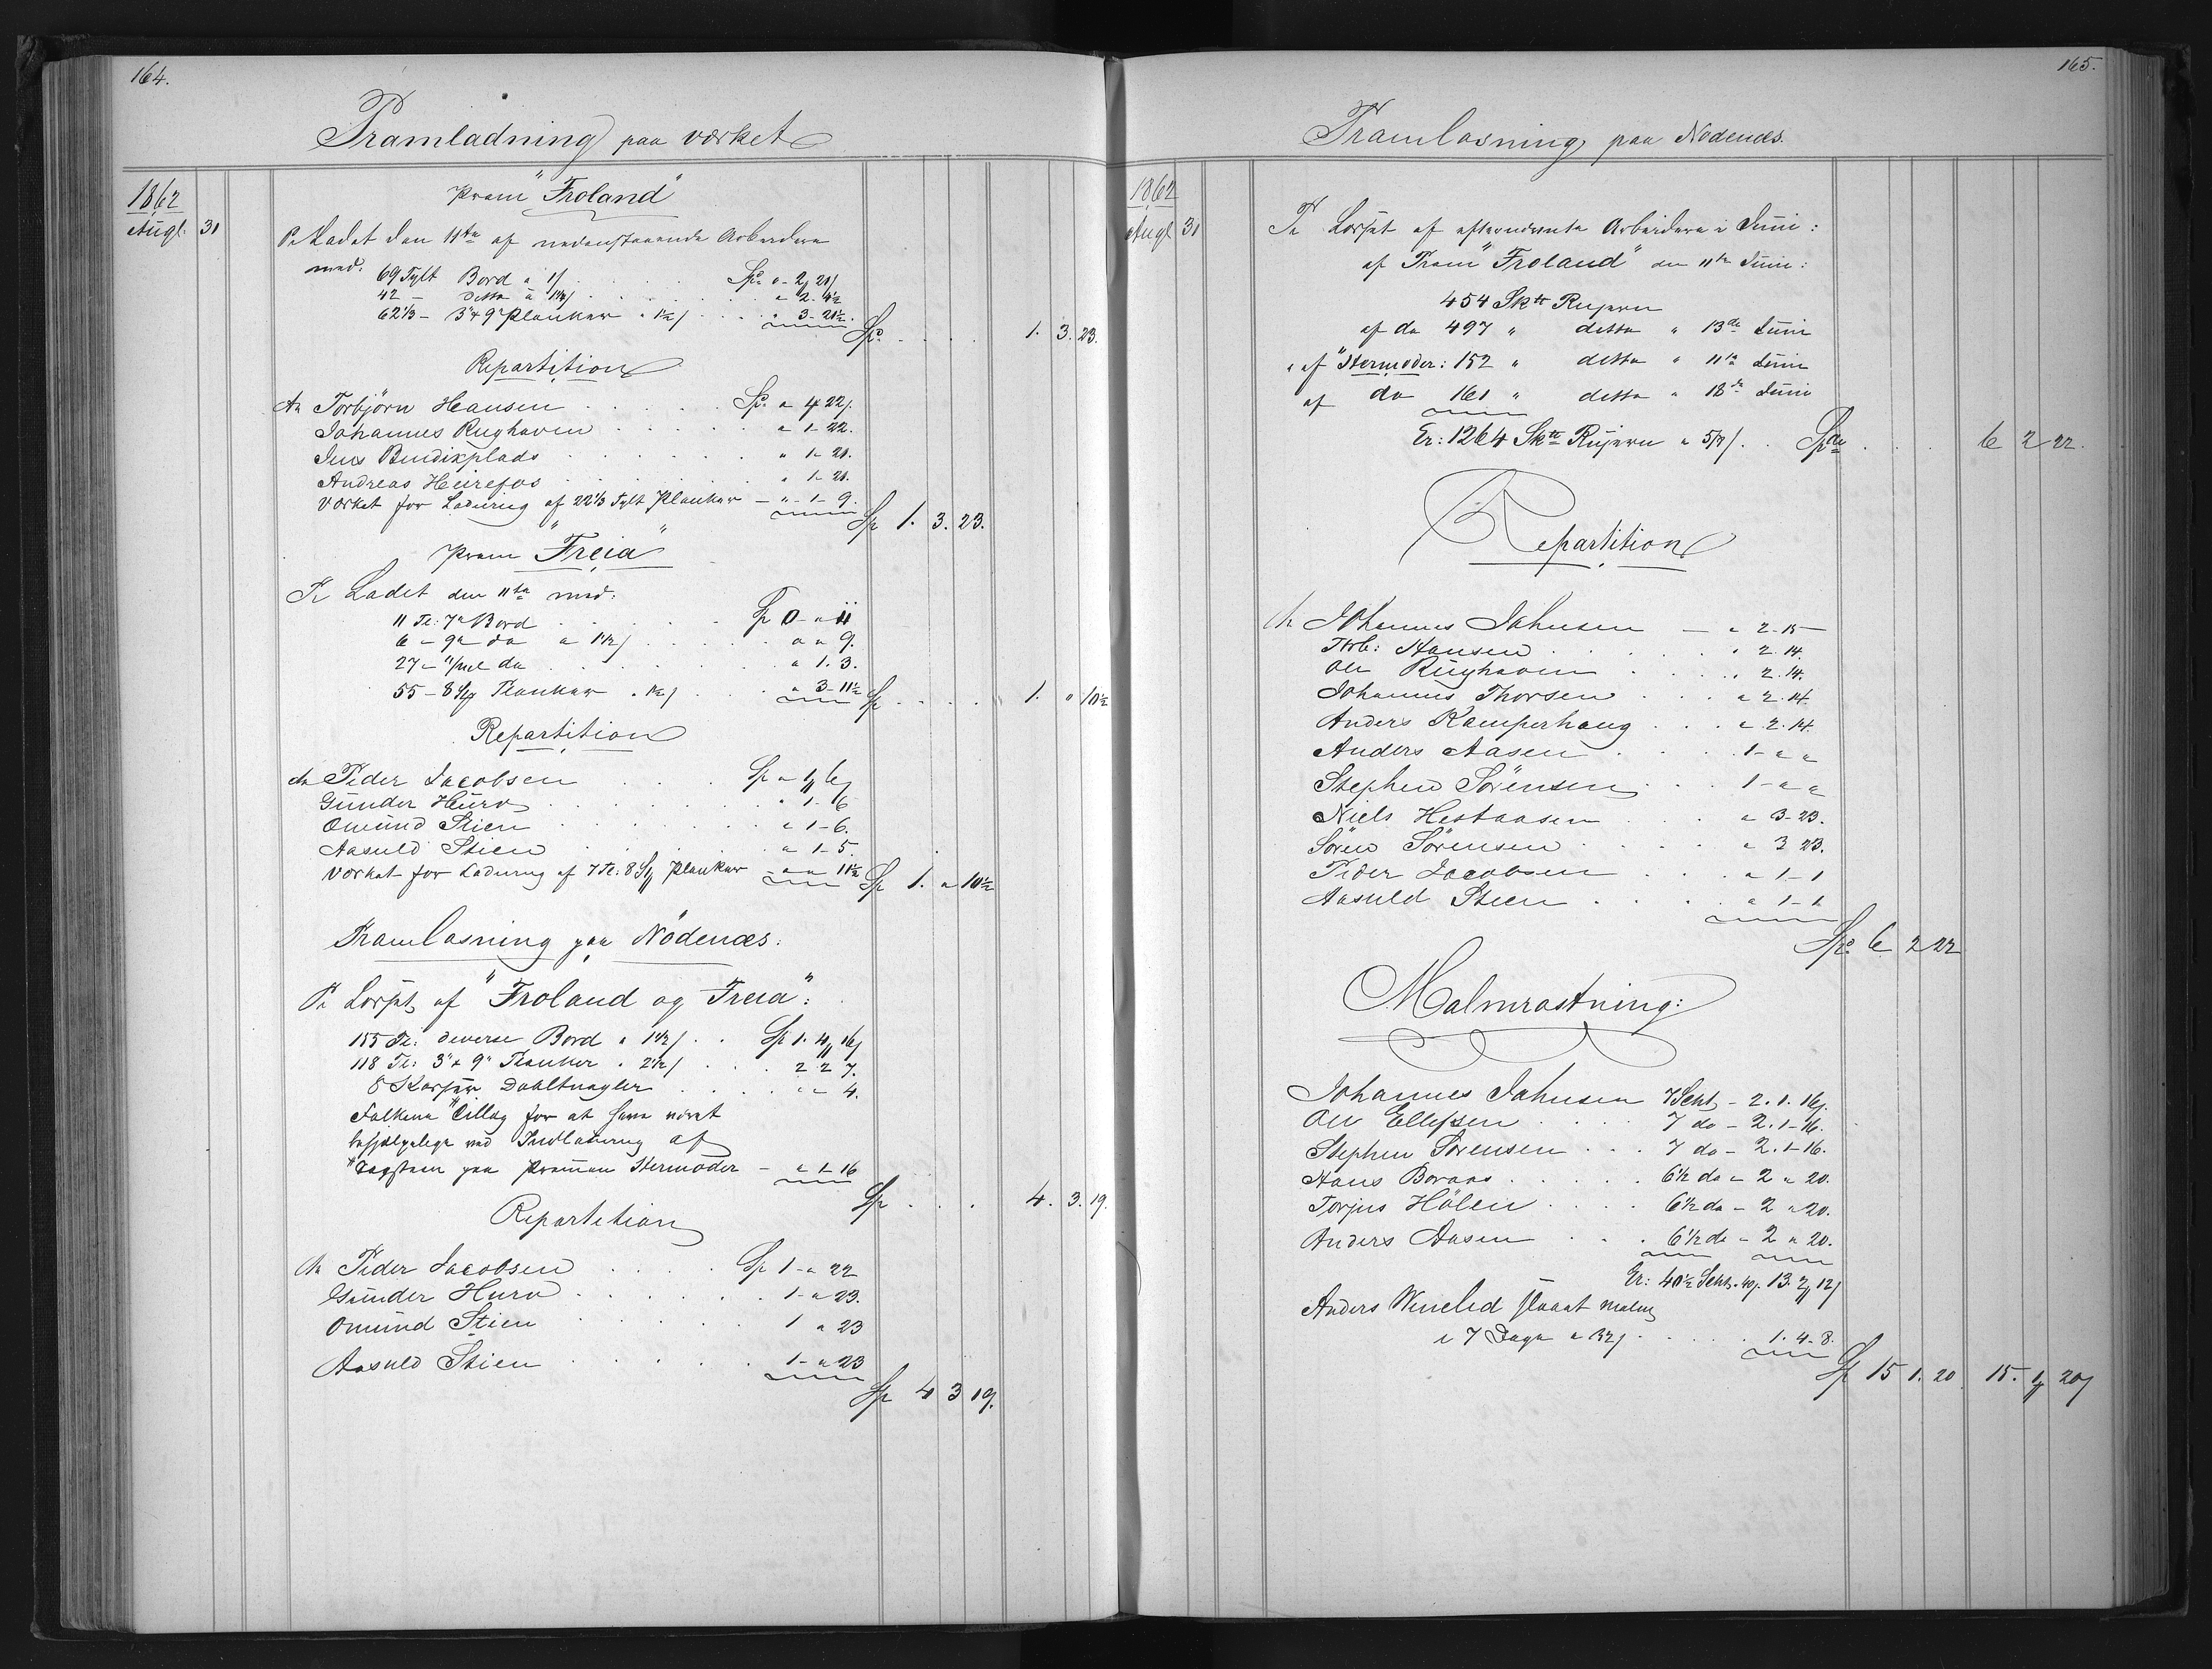 164.
Pramladning paa værket
1862
Augt. 31
Pram "Froland"
Pr Ladet den 11te af nedenstaaende Arbeidere
med. 69 Tylt Bord a 1/ . . . . Spd " - 2 21/
42 - ditto a 1½/ . . . . " 2. 4½
62⅓ - 3" x 9" Planker " 1½/ . . . " 3 - 21½.
Spd. . . . . 1. 3. 23.
Repartition
An Torbjørn Hansen . . . . . Spd. " 4 22/.
Johannes Rughaven . . . . . " 1 - 22.
Jens Bendixplads . . . . . . " 1 - 21.
Andreas Heirefos . . . . . . " 1 - 21.
Værket for Ladning af 22⅓ Tylt Planker - " - 1 - 9.
Sp 1. 3. 23.
Pram "Freia"
Pr Ladet den 11te med.
11 Tl: 7" Bord . . . . Sp 0 - " 11
6 - 9" do a 1½/ . . . . " " 9.
27 - do . . . . . . " 1. 3.
55 - Planker " 1½/ . . . " 3 - 11½
Sp . . . . 1. " 10½
Repartition
An Peder Jacobsen . . . Sp " 1 6/
Gunder Hurv . . . . . . " 1 - 6
Omund Stien . . . . . . " 1 - 6.
Aasuld Stien . . . . . . " 1 - 5.
Værket for Ladning af 7 Tl: Planker - " " 11½
Sp 1. " 10½
Pramlosning paa Nödenæs.
Pr Losset af "Froland og Freia":
155 Tl: diverse Bord a 1½/ . . Sp 1. 4 16/
118 Tl: 3" x 9" Planker " 2½/ . . . 2 2 7.
8 Dahltnagler . . . . " " 4.
Folkene Tillæg for at have været
behjælpelige ved Indladning af
Tagsteen paa Prammen Hermoder - " 1 - 16
Sp . . . 4. 3. 19.
Repartition
An Peder Jacobsen . . . . Sp 1 - " 22
Gunder Hurv . . . . . . 1 - " 23.
Omund Stien . . . . . 1 " 23
Aasuld Stien . . . . . 1 - " 23
Sp 4 3 19.
165.
Pramlosning paa Nødenæs.
1862
Augt 31
Pr Losset af efternævnte Arbeidere i Juni:
af Pram "Froland" den 11te Juni:
454 Sktt Rujern
af do 497 " ditto " 13de Juni
" af "Hermoder: 152 " ditto " 11te Juni
af do 161 " ditto " 18de Juni
Er: 1264 Sktt Rujern a 5/8/ . . Spd . . . 6 2 22.
Repartition
An Johannes Jahnsen - " 2 - 15 -
Thrb: Hansen . . . . . " 2. 14.
Ole Rughaven . . . . " 2. 14.
Johannes Thorsen . . . " 2. 14.
Anders Kamperhaug . . . " 2. 14.
Anders Aasen . . . . 1 - " "
Stephen Sörensen . . . 1 - " "
Niels Hestaasen . . . " 3 - 23.
Sören Sörensen . . . . " 3 23.
Peder Jacobsen . . . . " 1 - 1
Aasuld Stien . . . . . " 1 - 1
Spd. 6 2 22
Malmrøstning:
Johannes Jahnsen 7 Scht - 2. 1. 16/.
Ole Ellefsen . . . . 7 do - 2. 1 - 16.
Stephen Sörensen . . . 7 do - 2. 1 - 16.
Hans Boraas . . . . . 6½ do - 2 " 20.
Torjus Hölen . . . . 6½ do - 2 " 20.
Anders Aasen . . . 6½ do - 2 " 20.
Er: 40½ Scht. " 40/. 13. 2 12/
Anders Wineled Malm
i 7 Dage a 32/ . . . . . 1. 4 - 8.
Sp 15 1. 20 15. 1 20/